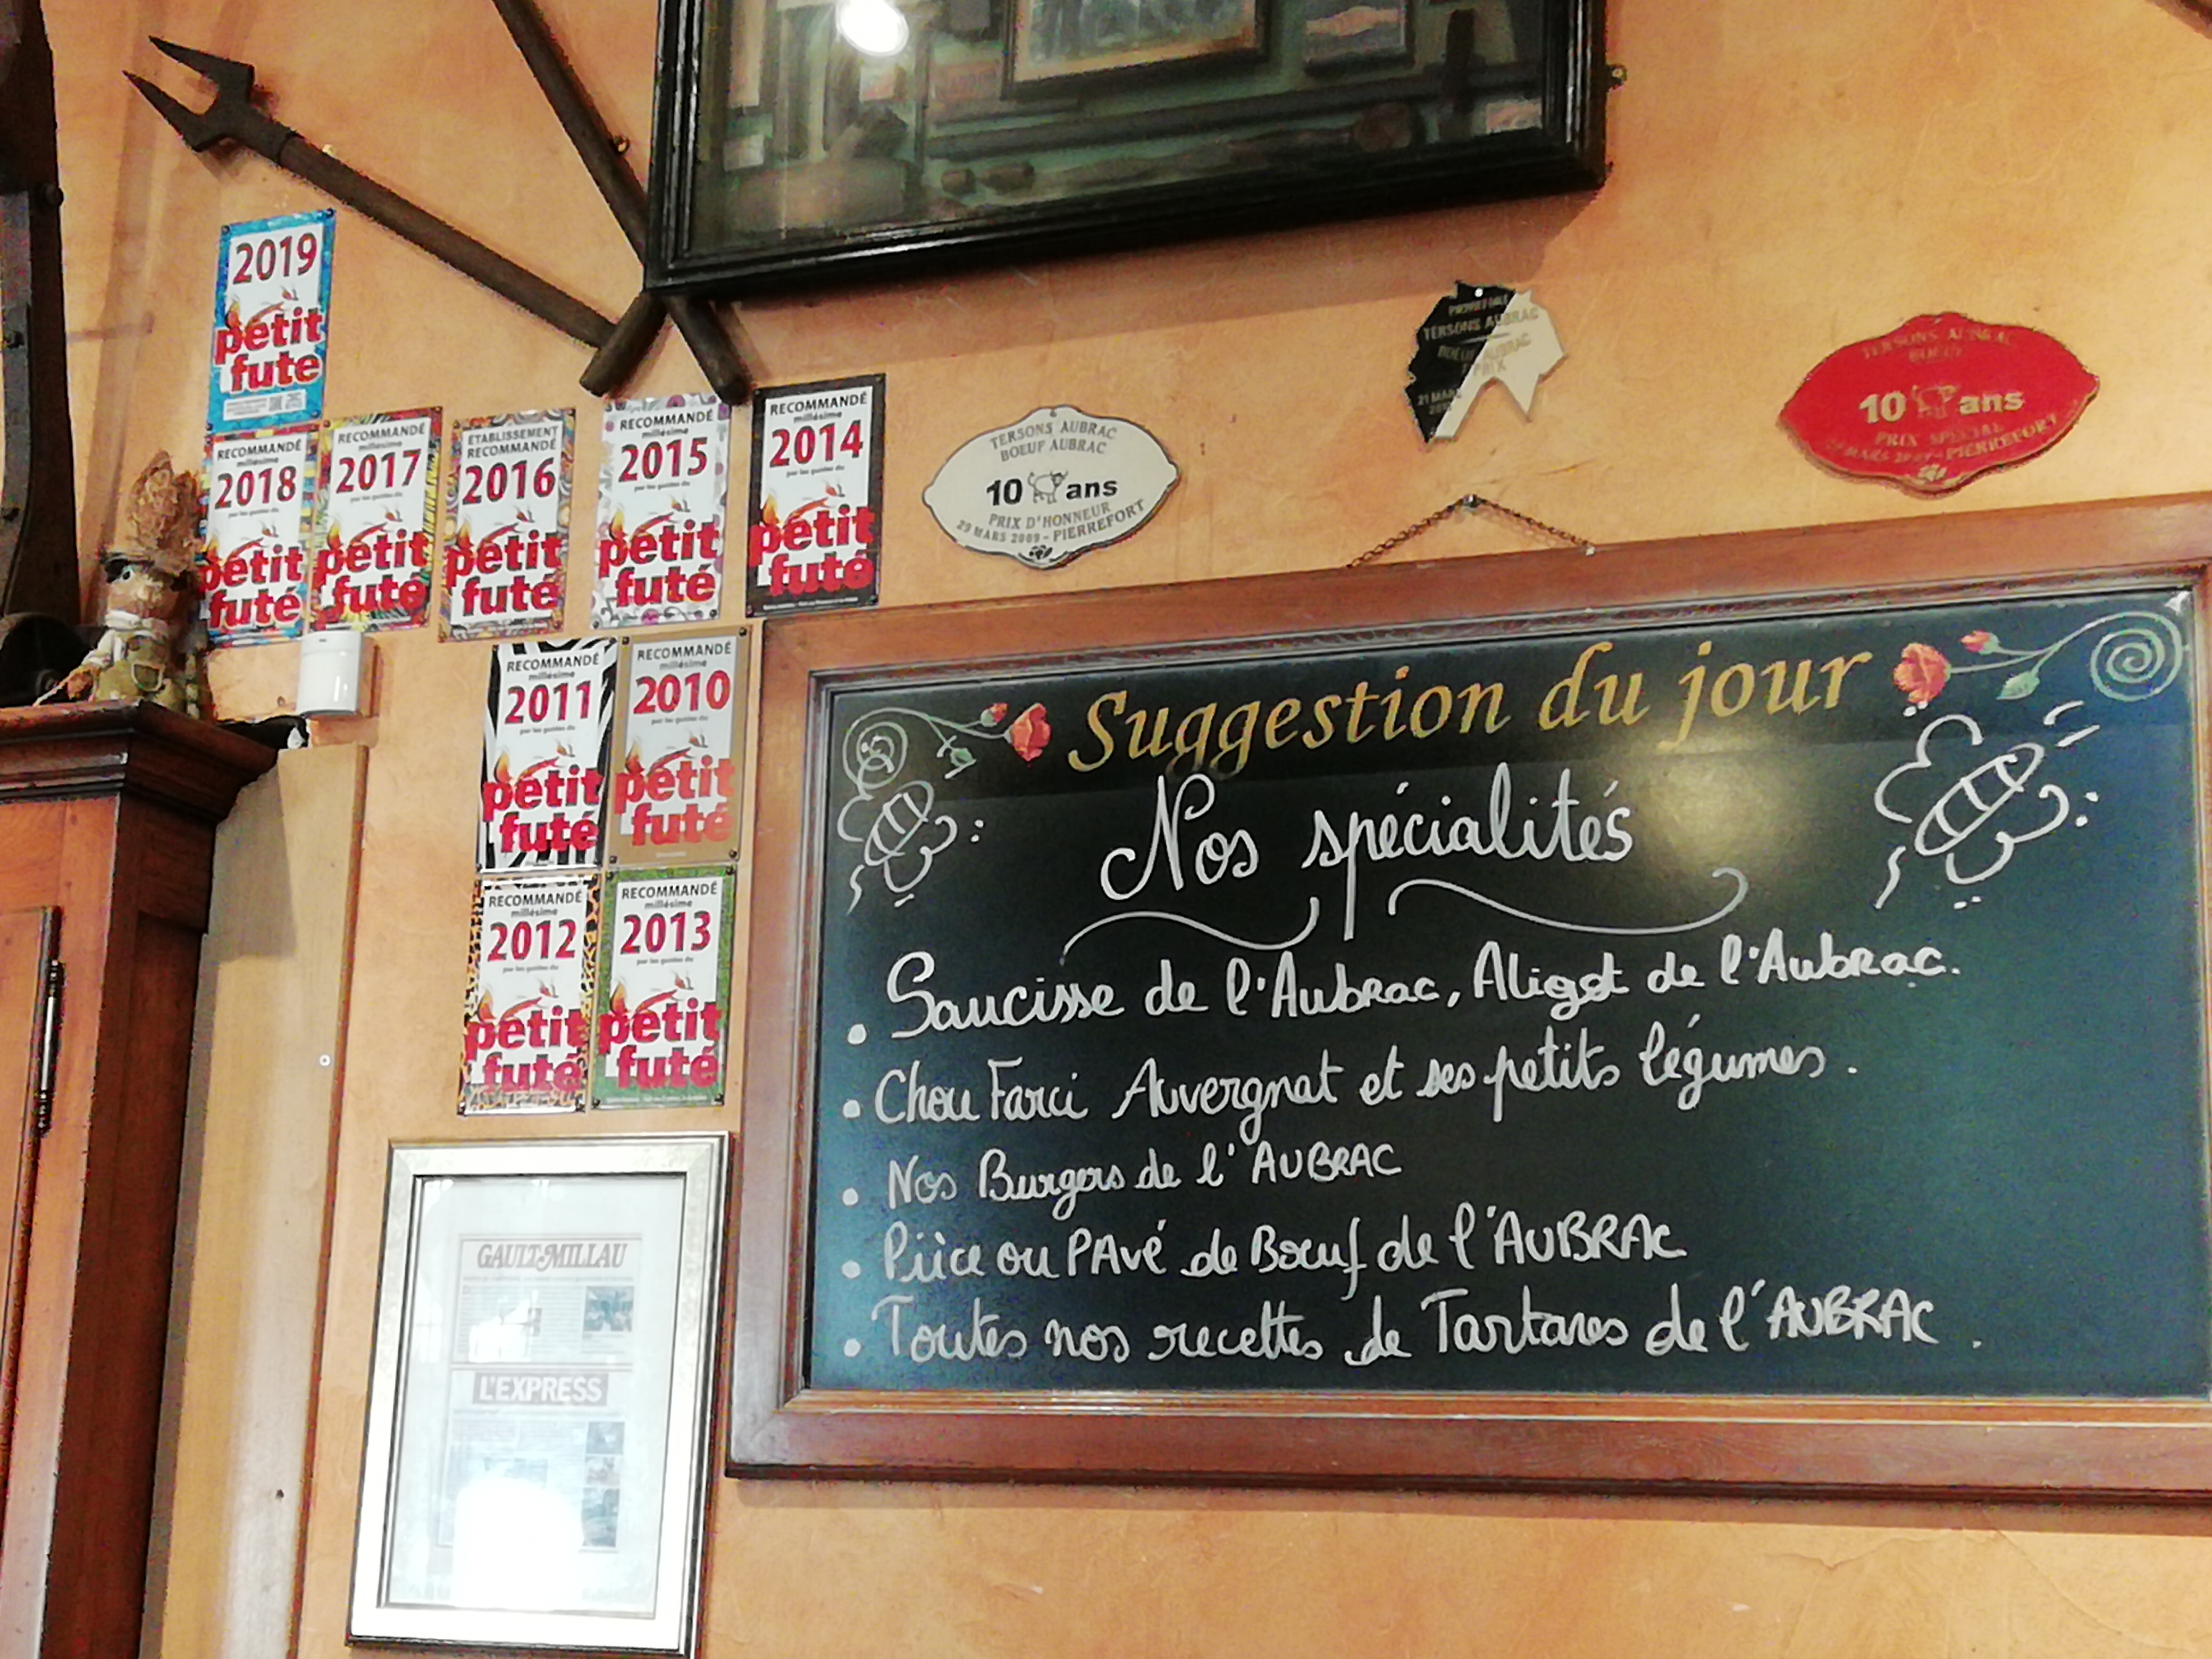 2019
petit
fute
RECOMMANDÉ
millésime
2018
petit
futé
RECOMMANDÉ
millésime
2017
petit
futé
ETABLISSEMENT
RECOMMANDÉ
2016
petit
futé
RECOMMANDÉ
millésime
2015
petit
futé
RECOMMANDÉ
millésime
2014
petit
futé
RECOMMANDÉ
millésime
2011
petit
futé
RECOMMANDÉ
millésime
2010
petit
futé
RECOMMANDÉ
millésime
2012
petit
futé
RECOMMANDÉ
millésime
2013
petit
futé
TERSONS AUBRAC
BOEUF AUBRAC
10 ans
PRIX D'HONNEUR
29 MARS 2009 - PIERREFORT
TERSONS AUBRAC
PRIX
21 MARS
TERSONS AUBRAC
BOEUF
10 ans
PRIX SPECIAL
MARS 2009 - PIERREFORT
Suggestion du jour
Nos spécialités
• Saucisse de l'Aubrac, Aligot de l'Aubrac.
• Chou Farci Auvergnat et ses petits légumes.
• Nos Burgers de l'AUBRAC
• Pièce ou PAvé de Boeuf de l'AUBRAC
• Toutes nos recettes de Tartares de l'AUBRAC.
GAULT-MILLAU
L'EXPRESS